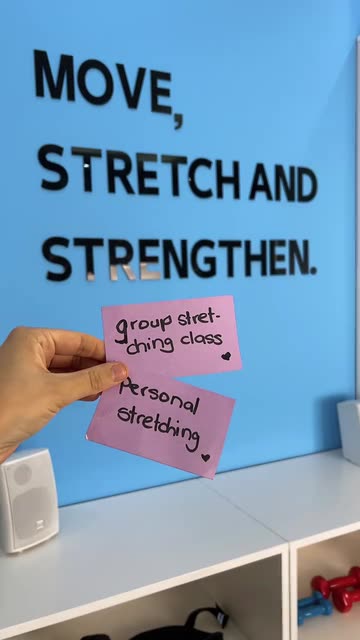 MOVE,
STRETCH AND
STRENGTHEN.
group stret-
ching class
Personal
stretching